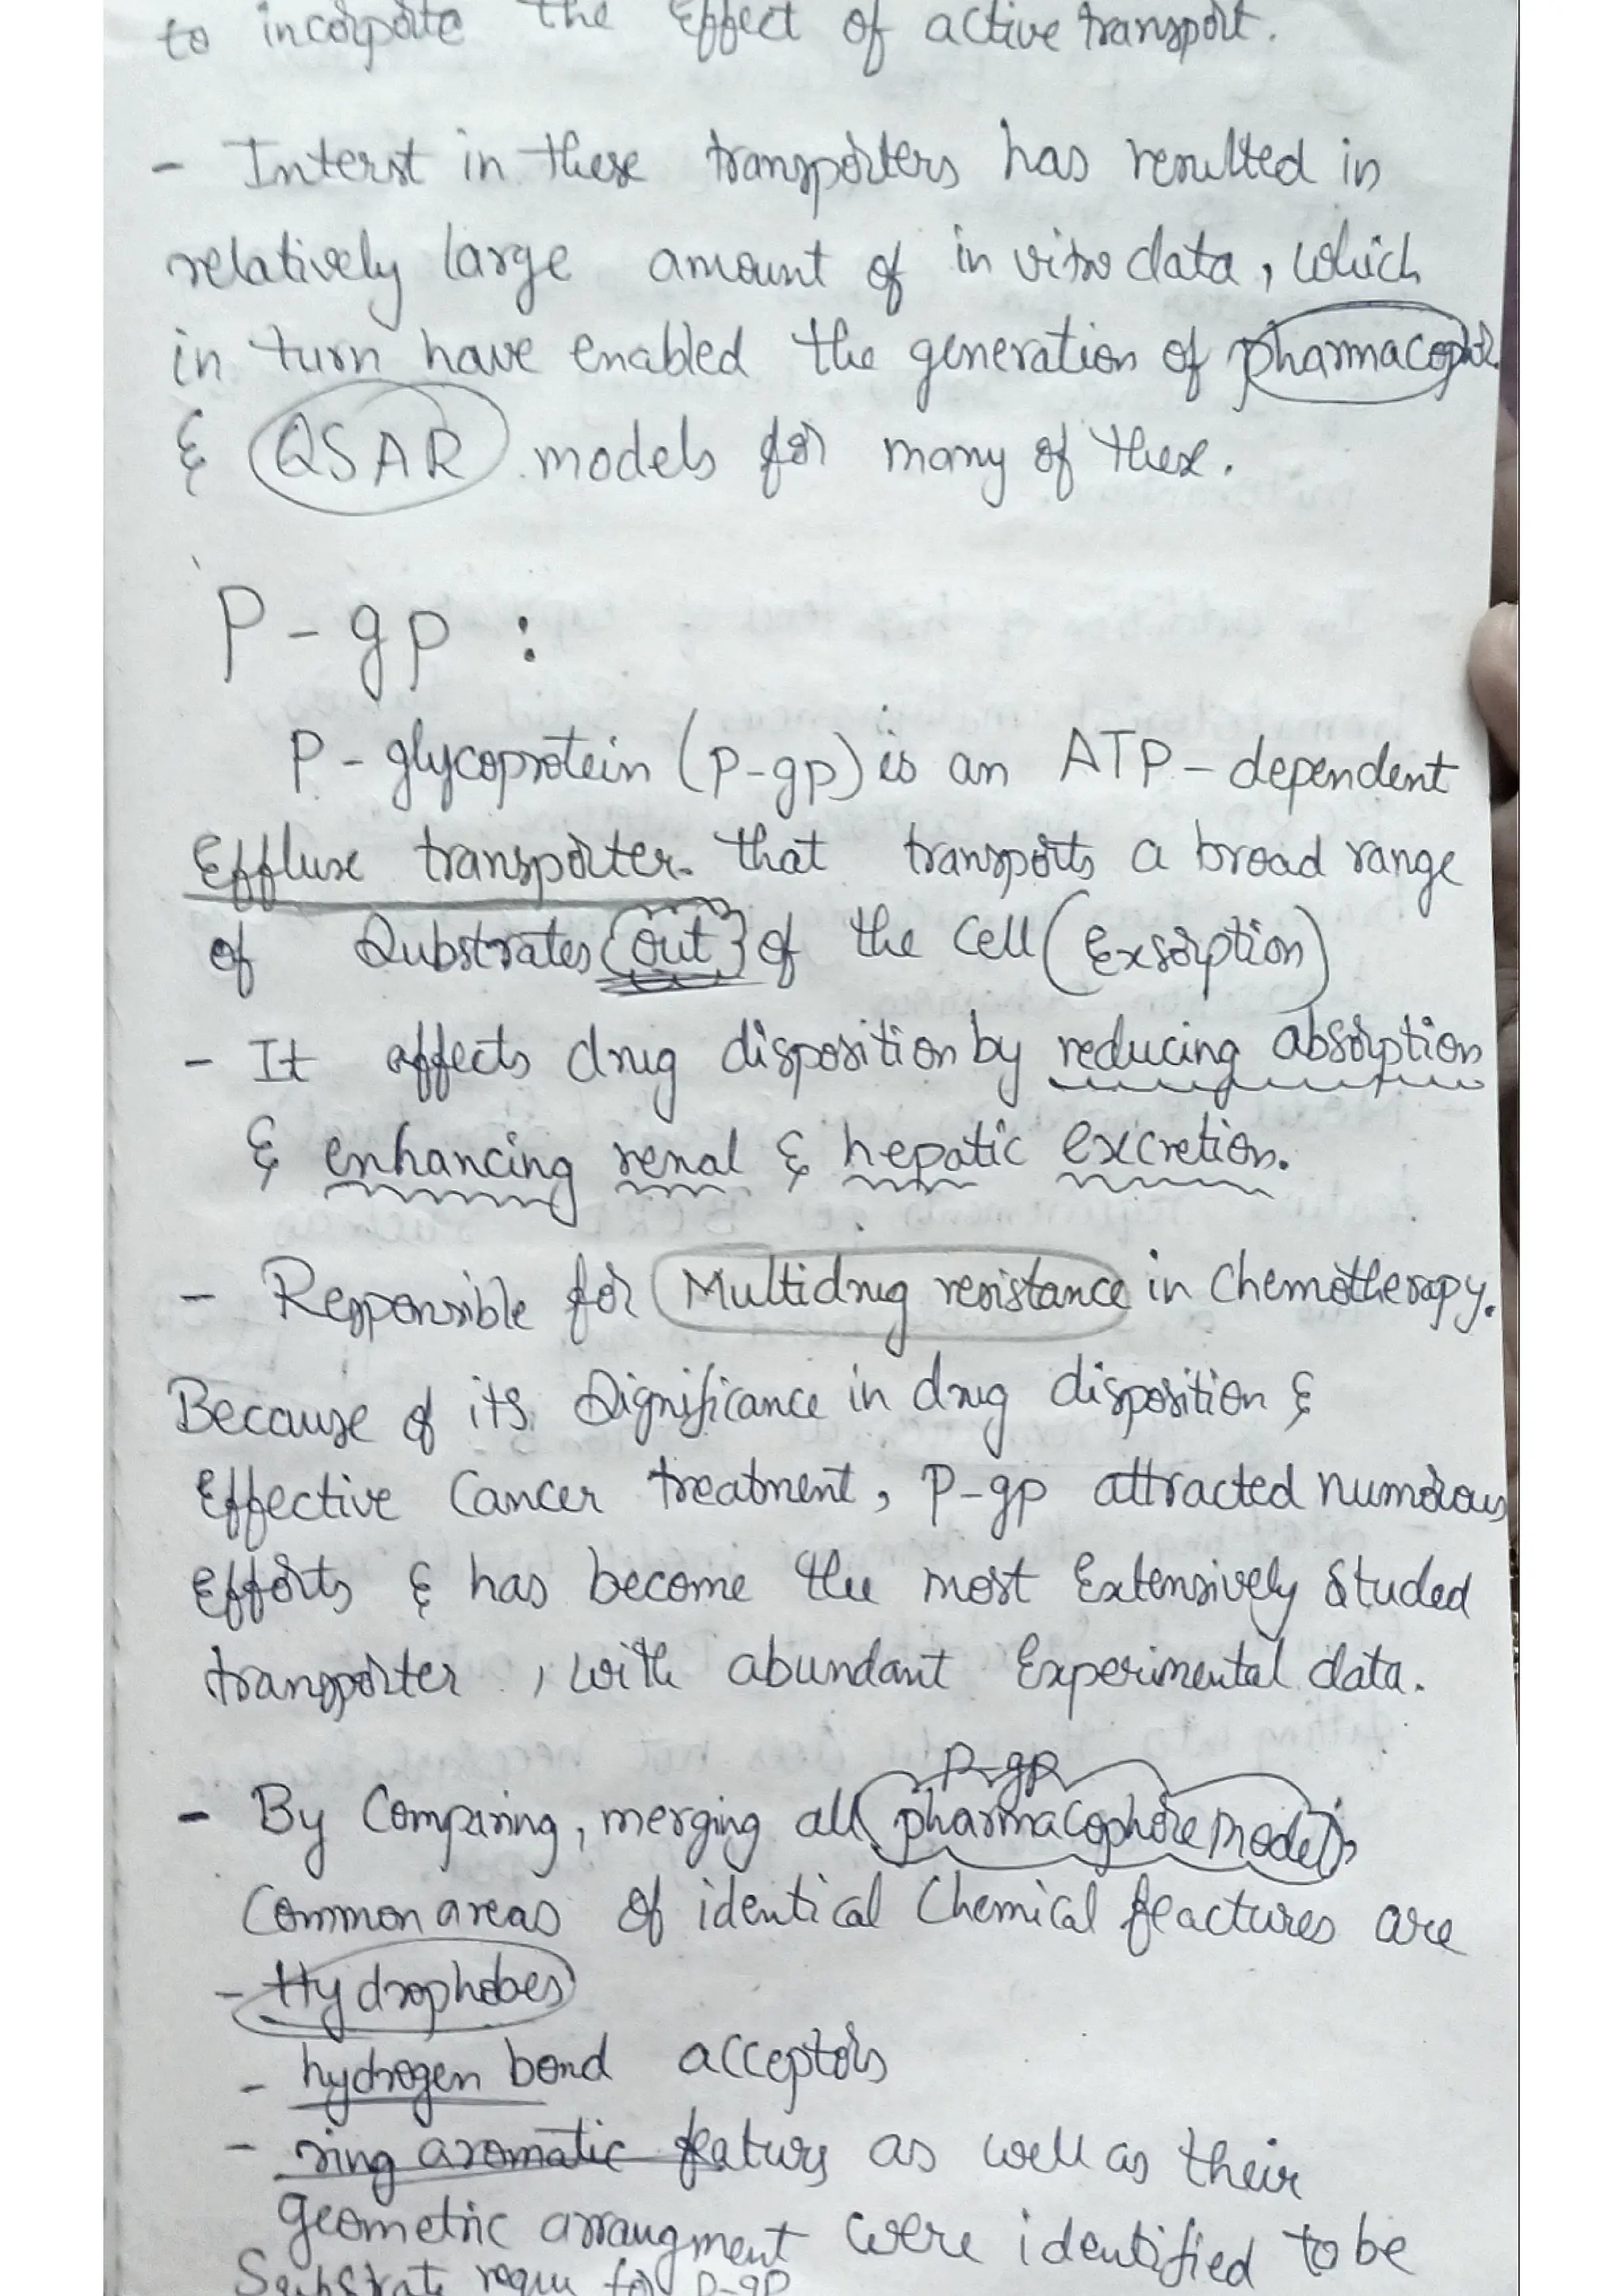 to incorporate the Effect of active transport.
- Interst in these transporters has resulted in
relatively large amount of in vitro data, which
in turn have enabled the generation of pharmacoph
& QSAR models for many of these.
P-gp :
P-glycoprotein (P-gp) is an ATP-dependent
Efflux transporter that transports a broad range
of Substrates out of the cell (Exsorption)
- It affects drug disposition by reducing absorption
& enhancing renal & hepatic excretion.
- Responsible for Multidrug resistance in Chemotherapy.
Because of its Significance in drug disposition &
Effective Cancer treatment, P-gp attracted numorous
Efforts & has become the most Extensively Studed
transporter, with abundant Experimental data.
P-gp
- By Comparing, merging all pharmacophore models
Common areas of identical Chemical feactures are
- Hydrophobes
- hydrogen bond acceptors
- ring aromatic featurs as well as their
geometric arraugment were identified to be
Substrate requ for P-gp